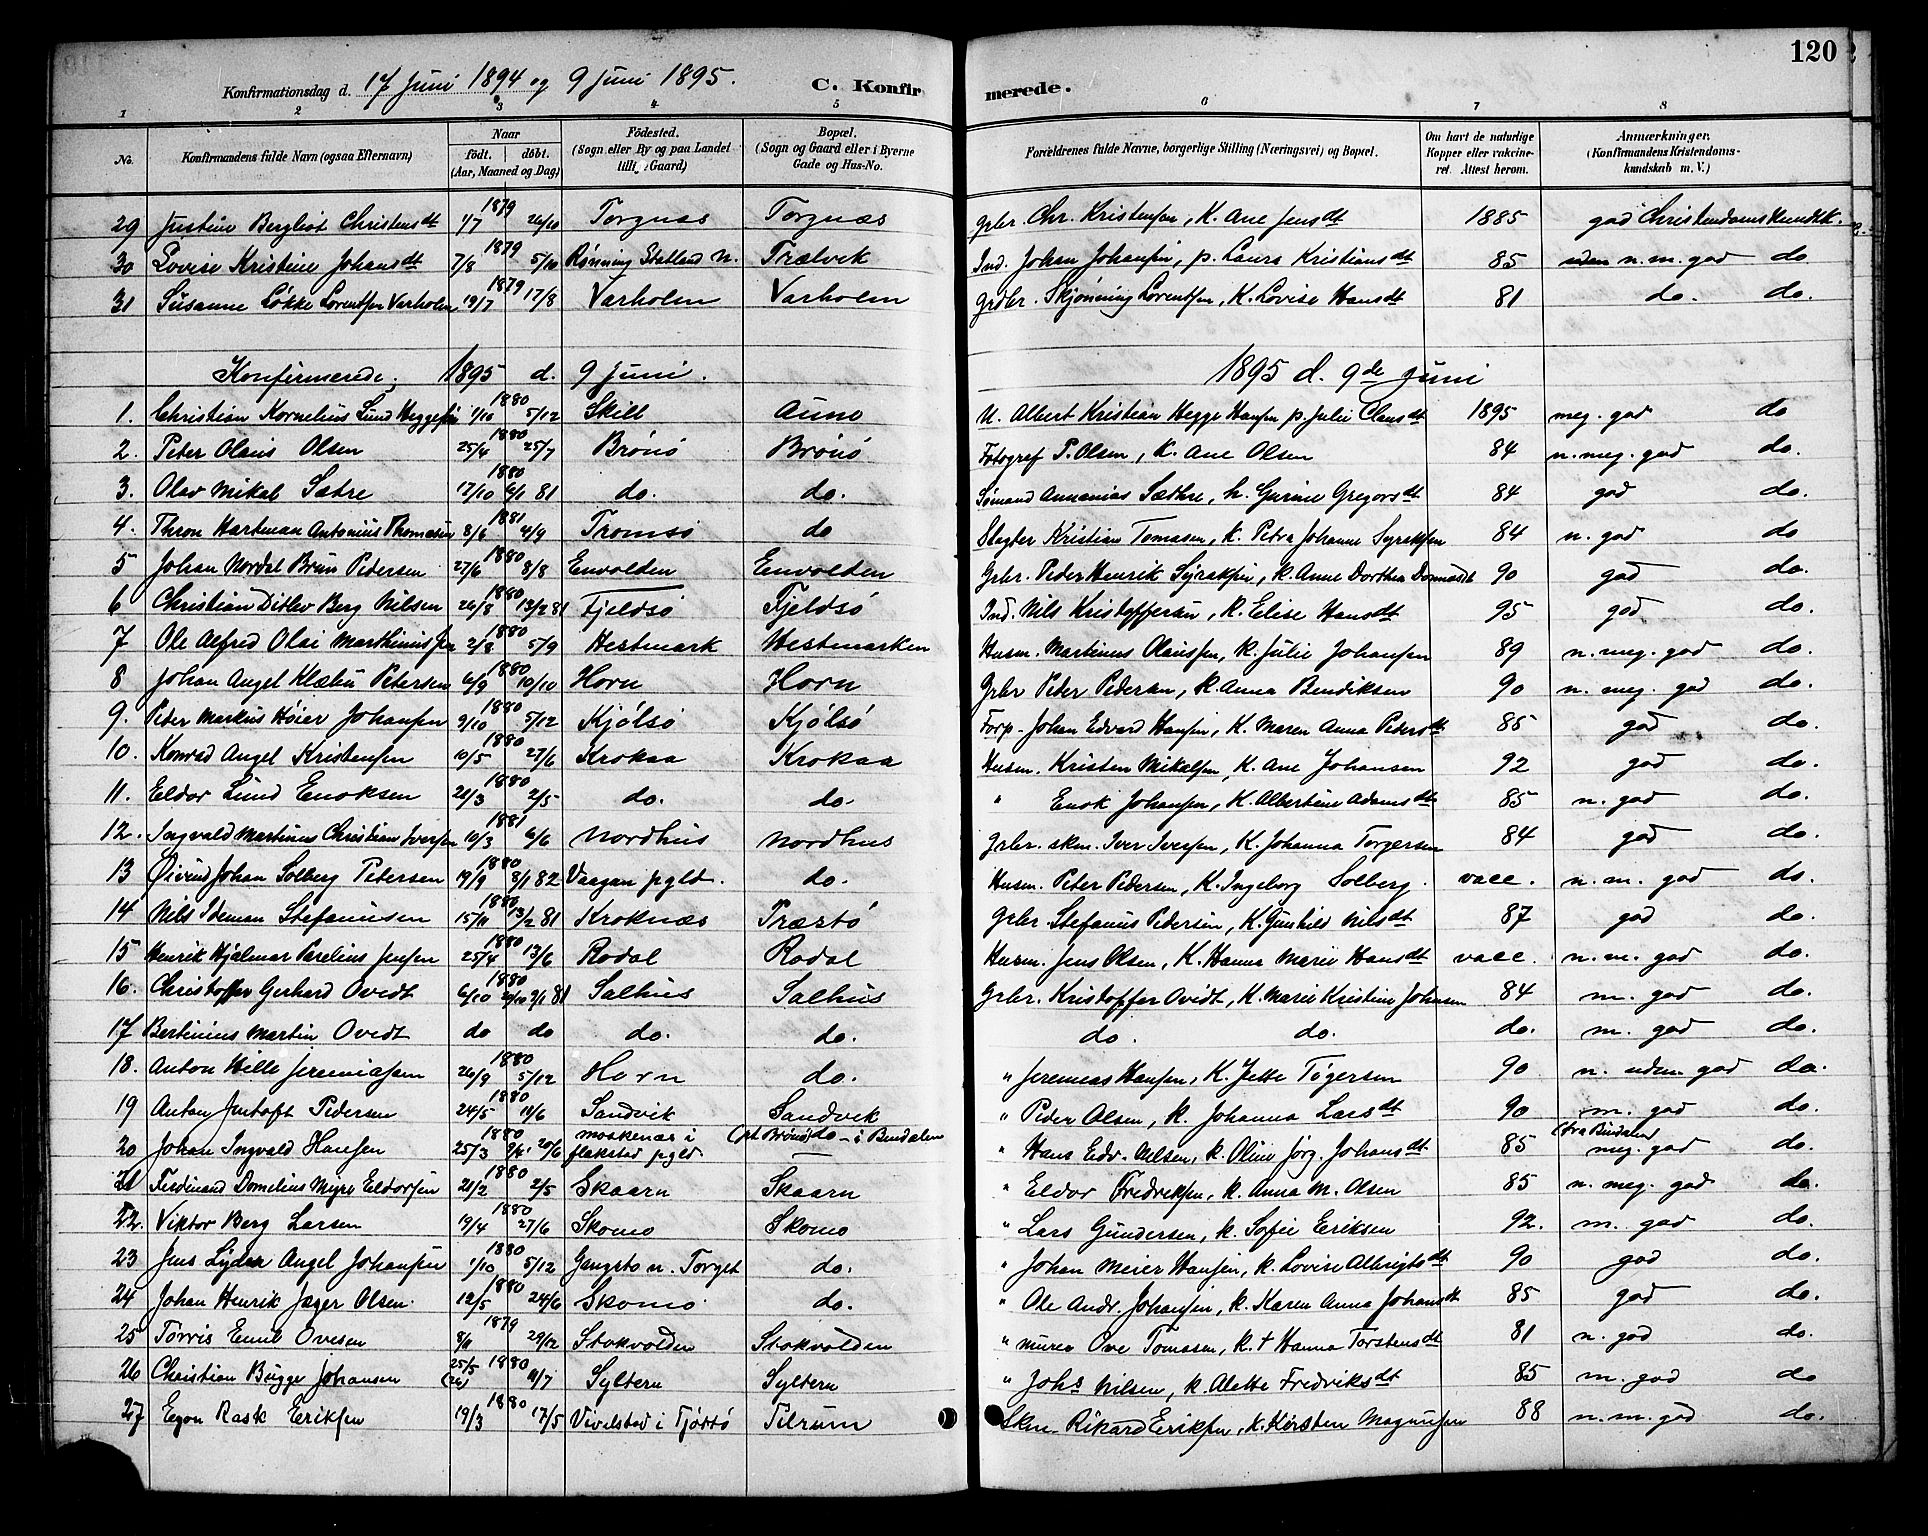 120
Konfirmationsdag d. 17 Juni 1894 og 9 Juni 1895. C. Konfirmerede.
1 2 3 4 5 6 7 8
No. Konfirmandens fulde Navn (ogsaa Efternavn) Naar födt. döbt. (Aar, Maaned og Dag) Födested. (Sogn eller By og paa Landet tillige Gaard) Bopæl. (Sogn og Gaard eller i Byerne Gade og Hus-No. Forældrenes fulde Navne, borgerlige Stilling (Næringsvei) og Bopæl. Om havt de naturlige Kopper eller vakcineret. Attest herom. Anmærkninger. (Konfirmandens Kristendomskundskab m. V.)
29 Justine Bergliot Christensdt 1/7 1879 26/10 Torgnæs Torgnæs Grbr. Chr. Kristensen, K. Ane Jensdt 1885 god Christendomskundsk.
30 Lovise Kristine Johansdt 7/8 1879 5/10 Rønning Statland n. Trælvik Ind. Johan Johansen, p. Laura Kristiansdt 85 n. m. god do
31 Susanne Løkke Lorentsen Varholm 19/7 1879 17/8 Varholm Varholm Grdbr. Skjønning Lorentsen, K. Lovise Hansdt 81 do. do.
Konfirmerede, 1895 d. 9 Juni. 1895 d. 9de Juni
1. Christian Kornelius Lund Heggesen 1/10 1880 5/12 Skill Auno U. Albert Kristian Hegge Hansen p. Julie Clausdt 1895 meg. god do
2. Peter Olaus Olsen 25/4 1880 25/7 Brönö Brönö Fotogref P. Olsen, K. Ane Olsen 84 n. meg. god do.
3. Olav Mikal Sætre 17/10 1880 6/1 81 do. do. Sömand Annanias Sæthre, h. Gurine Gregorsdt 84 god do.
4. Thron Hartman Antonius Thomasen 8/6 1881 4/9 Tromsö do Slagter Kristian Tomasen, K. Petra Johanne Syraksen 84 n. god do
5 Johan Nordal Brun Pedersen 27/6 1880 8/8 Envolden Envolden Grbr. Peder Henrik Syraksen, K. Anne Dorthea 90 god do.
6 Christian Ditlev Berg Nilsen 26/8 1880 13/2 81 Fjeldsö Fjeldsö Ind. Nils Kristoffersen, K. Elise Hansdt 95 god do.
7 Ole Alfred Olai Marthinussen 2/8 1880 5/9 Hestmark Hestmarken Husm. Martinus Olaussen, K. Julie Johansen 89 n. meg. god do.
8 Johan Angel Klæbu Petersen 6/9 1880 10/10 Horn Horn Grbr Peter Pedersen, K. Anna Bendiksen 90 n. meg. god do.
9. Peder Markus Höier Johansen 9/10 1880 5/12 Kjölsö Kjölsö Forp. Johan Edvard Hansen, K. Maren Anna Pedersdt 85 god do.
10. Konrad Angel Kristensen 10/5 1880 27/6 Krokaa Krokaa Husm. Kristen Mikalsen, K. Ane Johansen 92 god do.
11. Eldor Lund Enoksen 21/3 1880 2/5 do. do. " Enok Johansen, K. Albertine Adamsdt 85 n. god do.
12. Ingvald Martinus Christian Iversen 10/3 1881 6/6 Nordhus Nordhus Grbr. skm. Iver Iversen, K. Johanna Torgersen 84 god do.
13 Öivind Johan Solberg Petersen 19/9 1880 8/1 82 Vaagan pgld. do. Husm. Peter Pedersen, K. Ingeborg Solberg. vacc. n. m. god do.
14 Nils Ideman Stefanusen 15/11 1880 13/2 81 Kroknæs Træstö Grbr Stefanus Pedersen, K. Gunhild Nilsdt 87 god do.
15 Henrik Hjalmar Parelius Jensen 25/4 1880 13/6 Rodal Rodal Husm. Jens Olsen, K. Hanna Marie Hansdt vacc. n. m. god do.
16. Christoffer Gerhard Ovidt 6/10 1880 2/1 81 Salhus Salhus Grbr. Kristoffer Ovidt, K. Marie Kristine Johnsen 84 m. god do.
17 Bertinius Martin Ovidt do do do. do. do. do. do. m. god do.
18. Anton Hille Jeremiasen 26/9 1880 5/12 Horn do. " Jeremias Hansen, K. Jette Tögersen 90 n. uden god do.
19 Anton Jentoft Pedersen 24/5 1880 11/6 Sandvik Sandvik " Peder Olsen, K. Johanna Larsdt 90 m. god do.
20 Johan Ingvald Hansen 25/3 1880 20/6 Moskenæs i Flakstad pgld. (pt Brönö) do - i Bindalen " Hans Edv. Nilsen, K. Oline Jörg. Johansdt 85 (fra Bindalen) meg. god do.
21 Ferdinand Domelius Myre Eldorsen 21/2 1880 2/5 Skaarn Skaarn " Eldor Fredriksen, K. Anna M. Olsen 85 n. meg. god do.
22. Viktor Berg Larsen 19/4 1880 27/6 Skomo Skomo " Lars Gundersen, K. Sofie Eriksen 92. m. god do.
23 Jens Lyder Angel Johansen 1/10 1880 5/12 Gangstö n. Torget do. " Johan Meier Hansen, K. Lovise Albrigtsdt 90 god do.
24 Johan Henrik Jæger Olsen 12/5 1880 24/6 Skomo do. " Ole Andr. Johansen, K. Karen Anna Johansdt 85 god do.
25 Torris Emil Ovesen 8/11 1879 29/12 Stokvolden Stokvolden " Murer Ove Tomasen, K. + Hanna Torstensdt 81 n. god do.
26 Christian Bugge Johansen 25/5 (26) 1880 11/7 Sylteren Sylteren " Johs Nilsen, K. Alette Fredriksdt 85 m. god do
27 Egon Rask Eriksen 19/3 1880 17/5 Vivelstad i Tjöttö Tilrum Skm. Rikard Eriksen, K. Kirsten Magnussen 88 n. m. god do.